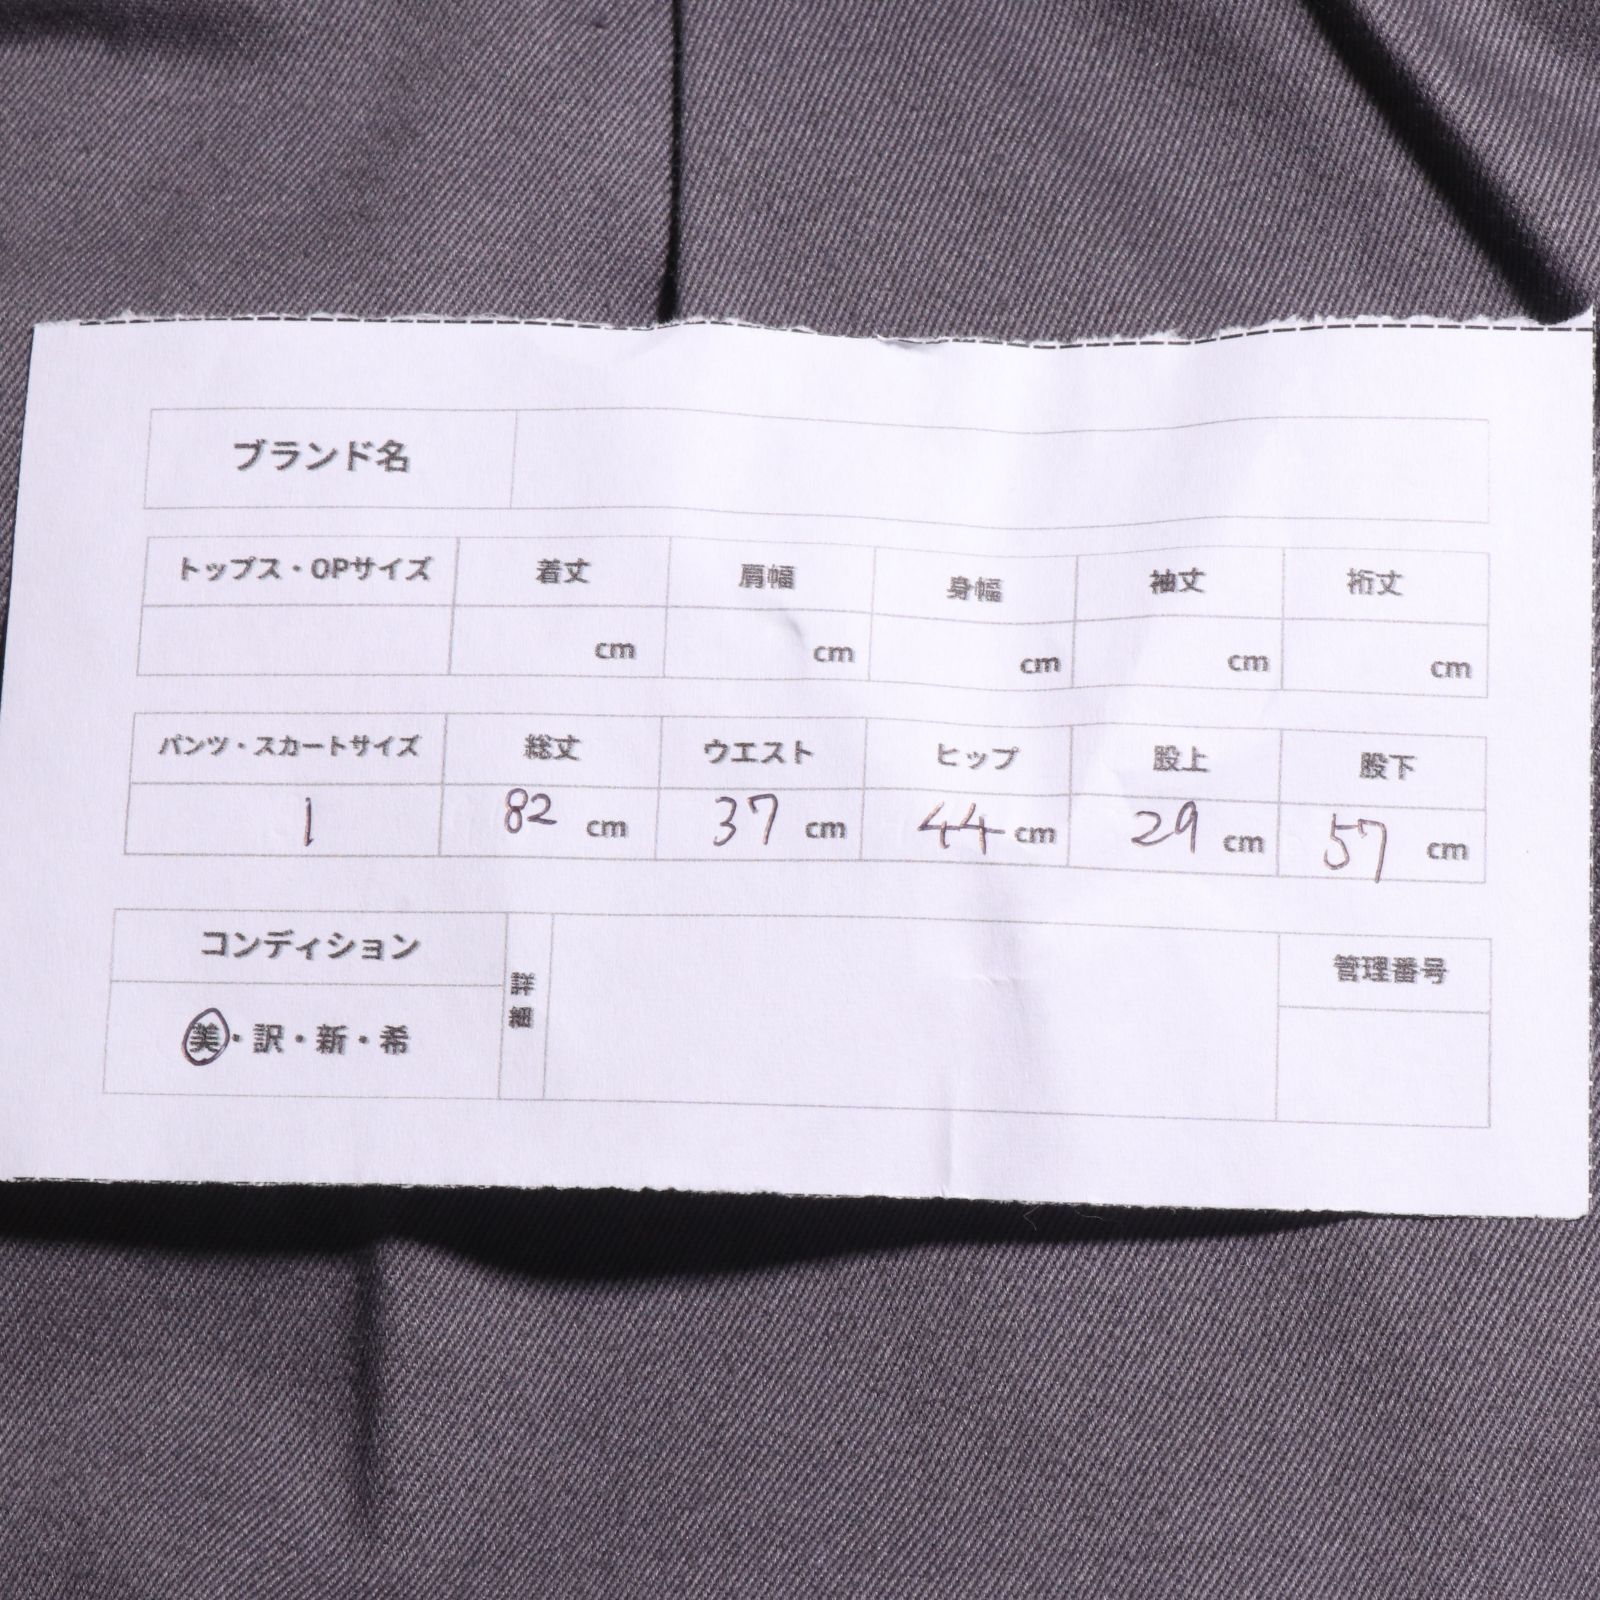 ブランド名
トップス・OPサイズ 着丈 肩幅 身幅 袖丈 裄丈
cm cm cm cm cm
パンツ・スカートサイズ 総丈 ウエスト ヒップ 股上 股下
1 82 cm 37 cm 44 cm 29 cm 57 cm
コンディション 詳細 管理番号
美・訳・新・希